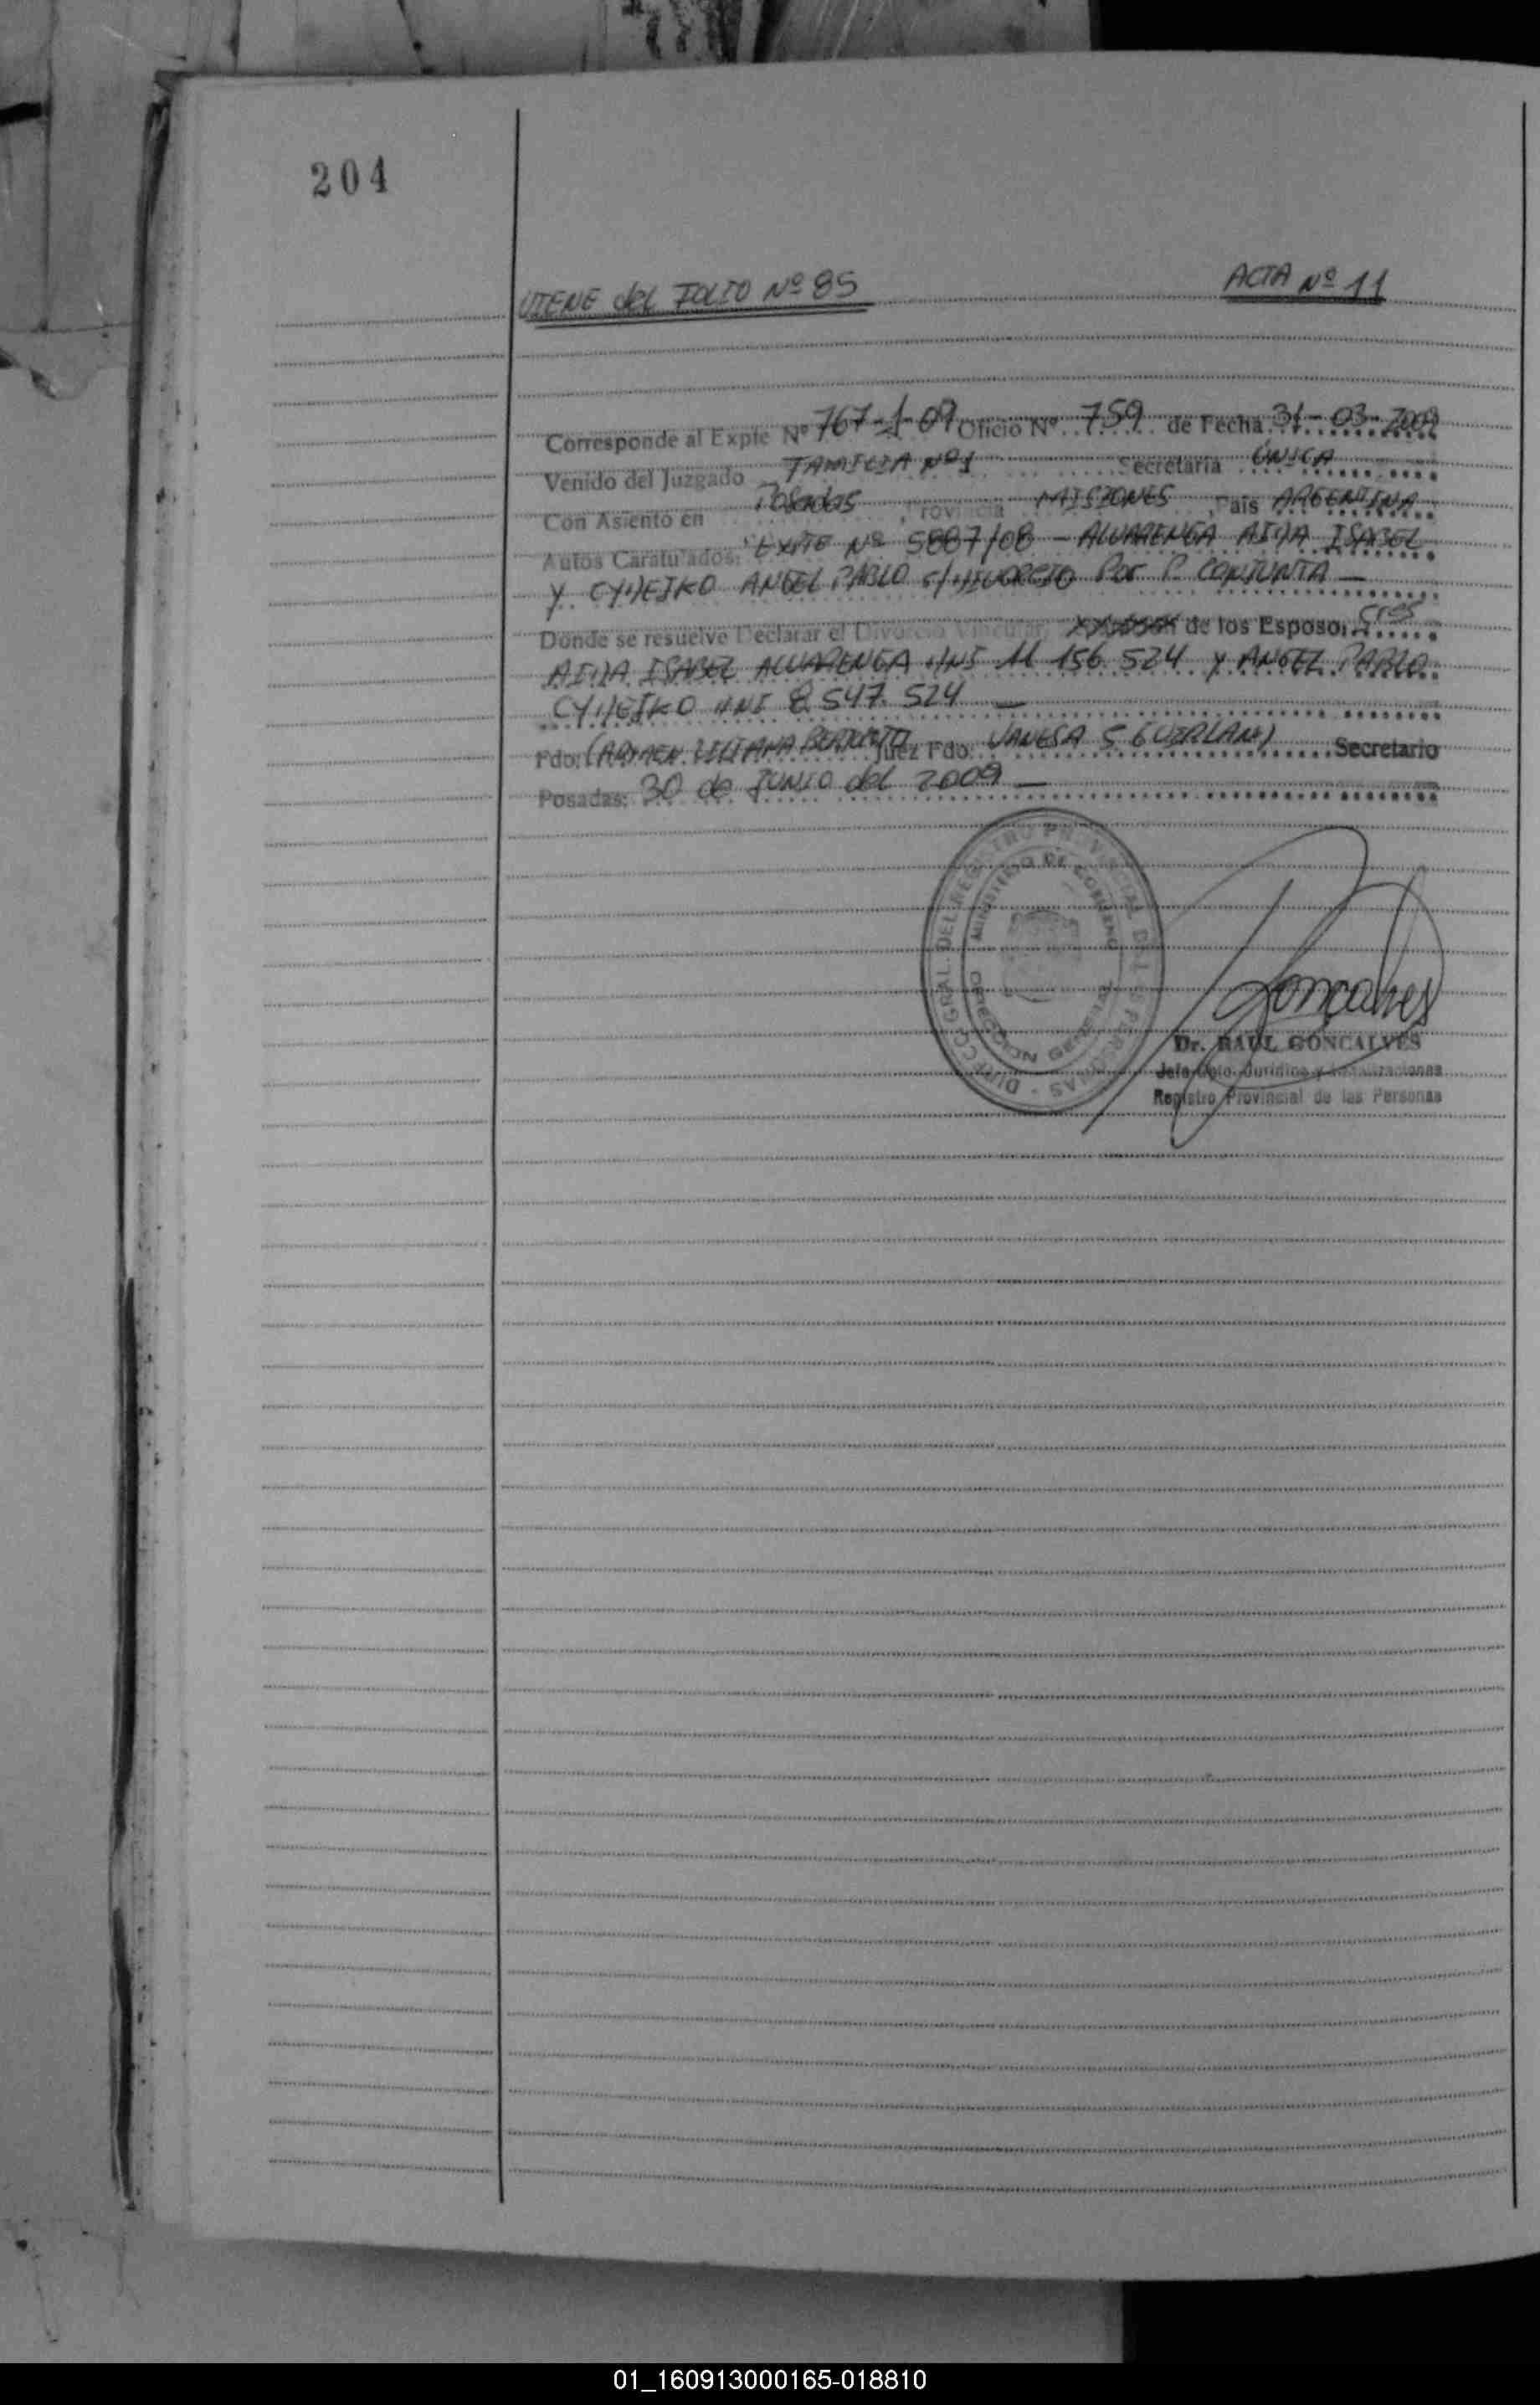 204
VIENE del FOLIO Nº 85
ACTA Nº 11
Corresponde al Expte Nº 767-1-09 Oficio Nº 759 de Fecha 31-03-2009
Venido del Juzgado FAMILIA Nº1 Secretaria ÚNICA
Con Asiento en Posadas, Provincia MISIONES, Pais ARGENTINA
Autos Caratulados: "EXPTE Nº 5887/08 - ALVARENGA AIDA ISABEL
Y CYDEJKO ANGEL PABLO s/DIVORCIO Por P. CONJUNTA —
Donde se resuelve Declarar el Divorcio Vincular, de los Esposo, Cres
AIDA ISABEL ALVARENGA DNI 11 156 524 y ANGEL PABLO
CYDEJKO DNI 8.547.524 —
Fdo: CARMEN LILIANA Juez Fdo. VANESA S GUIRLAND Secretario
Posadas: 30 de JUNIO del 2009 —
DIRECC. GRAL. DEL REGISTRO PROVINCIAL DE LAS PERSONAS
MINISTERIO DE GOBIERNO
DIRECCION GENERAL
Goncalves
Dr. RAUL GONCALVES
Jefe Dpto. Juridico y
Registro Provincial de las Personas
01_160913000165-018810